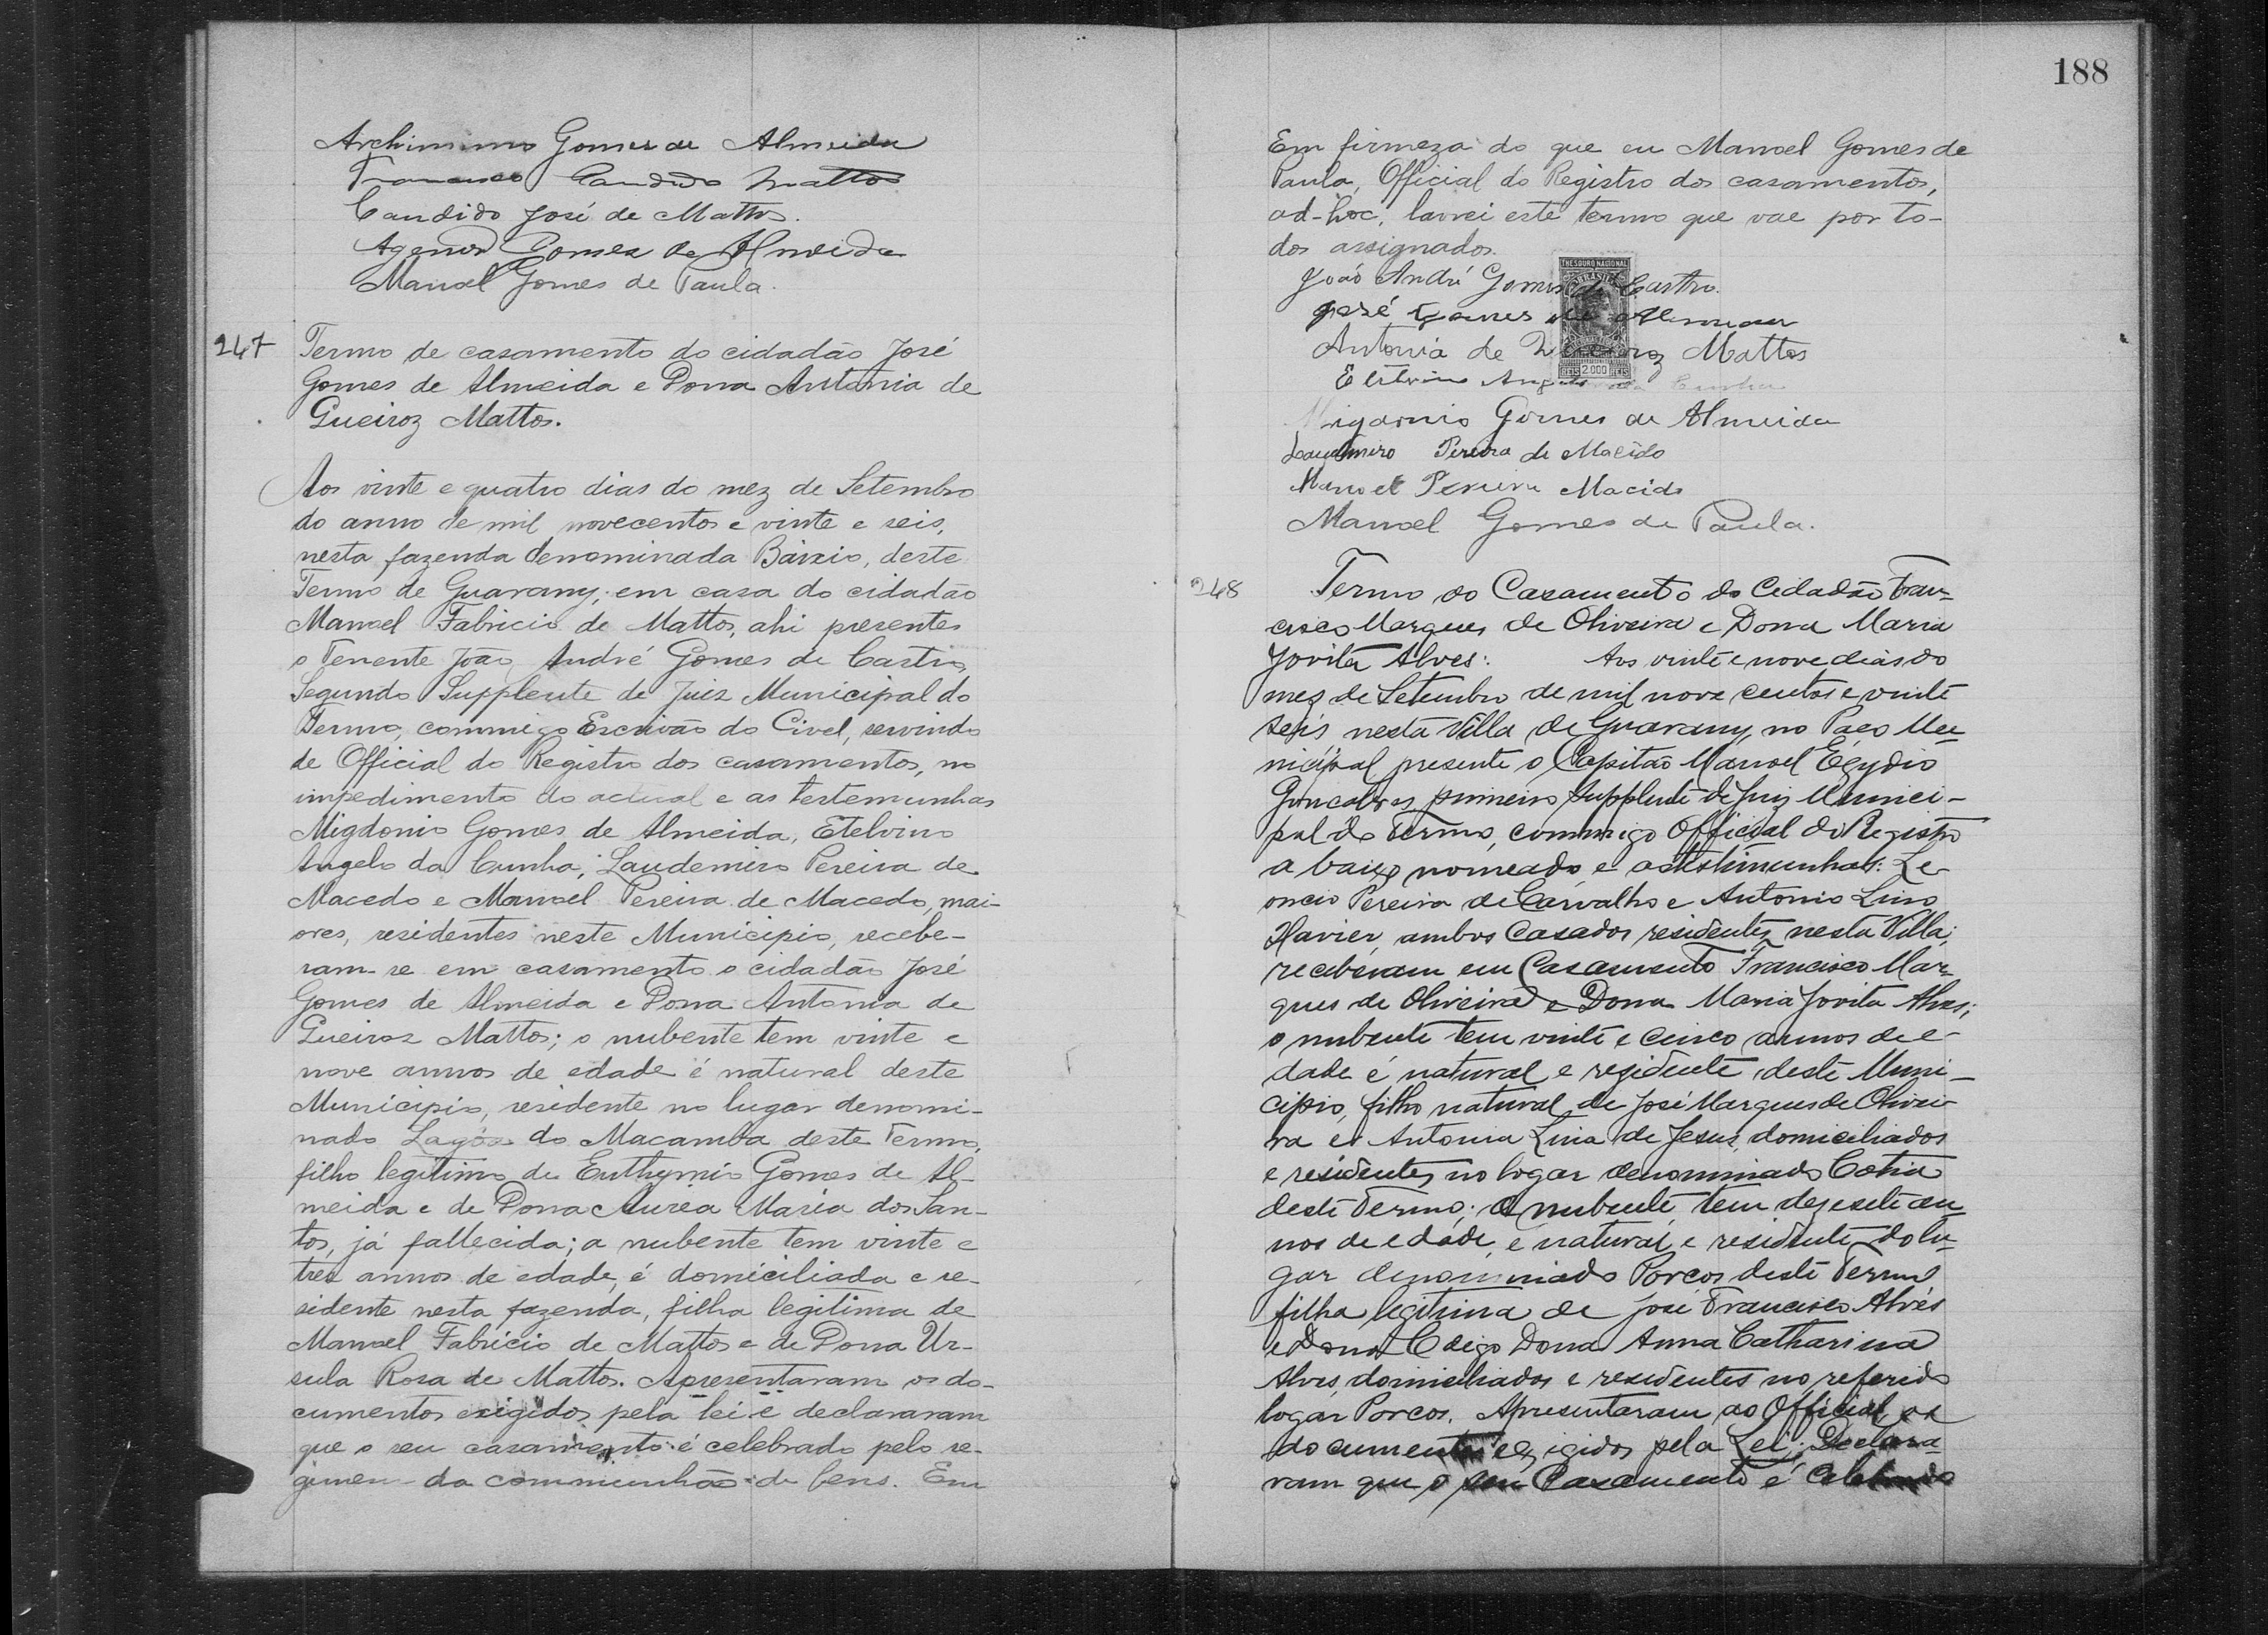 Archimimo Gomes de Almeida
Francisco Candido Mattos
Candido José de Mattos.
Agenor Gomes de Almeida
Manoel Gomes de Paula.
247
Termo de casamento do cidadão José
Gomes de Almeida e Dona Antonia de
Queiroz Mattos.
Aos vinte e quatro dias do mez de Setembro
do anno de mil novecentos e vinte e seis,
nesta fazenda denominada Baixio, deste
Termo de Guarany, em casa do cidadão
Manoel Fabricio de Mattos, ahi presentes
o Tenente João André Gomes de Castro,
Segundo Supplente de Juiz Municipal do
Termo, commigo Escrivão do Civel, servindo
de Official do Registro dos casamentos, no
impedimento do actual e as testemunhas
Migdonio Gomes de Almeida, Etelvino
Angelo da Cunha, Laudemiro Pereira de
Macedo e Manoel Pereira de Macedo, mai-
ores, residentes neste Municipio, recebe-
ram-se em casamento o cidadão José
Gomes de Almeida e Dona Antonia de
Queiroz Mattos; o nubente tem vinte e
nove annos de edade é natural deste
Municipio, residente no lugar denomi-
nado Lagôa do Macamba deste Termo,
filho legitimo de Euthymio Gomes de Al-
meida e de Dona Aurea Maria dos San-
tos, já fallecida; a nubente tem vinte e
tres annos de edade, é domiciliada e re-
sidente nesta fazenda, filha legitima de
Manoel Fabricio de Mattos e de Dona Ur-
sula Rosa de Mattos. Apresentaram os do-
cumentos exigidos pela lei e declararam
que o seu casamento é celebrado pelo re-
gimen da communhão de bens. Em
188
Em firmeza do que eu Manoel Gomes de
Paula, Official do Registro dos casamentos,
ad-hoc, lavrei este termo que vae por to-
dos assignados.
THESOURO NACIONAL
BRASIL
João André Gomes de Castro.
José Gomes de Almeida
Antonia de Queiroz Mattos
REIS 2.000 REIS
Etelvino Angelo da Cunha
Migdonio Gomes de Almeida
Laudimiro Pereira de Macêdo
Manoel Pereira Macido
Manoel Gomes de Paula.
248
Termo do Casamento do Cidadão Fran-
cisco Marques de Oliveira e Dona Maria
Jovita Alves: Aos vinte e nove dias do
mez de Setembro de mil nove centos e vinte
seis nesta Villa de Guarany, no Paço Mu-
nicipal, presente o Capitão Manoel Egydio
Goncalves, primeiro Supplente de Juiz Munici-
pal do Termo, commigo Official do Registro
a baixo nomeado e as testimunhas: Le-
oncio Pereira de Carvalho e Antonio Lino
Xavier, ambos Casados residentes nesta Villa;
receberam em Casamento Francisco Mar-
ques de Oliveira e Dona Maria Jovita Alves;
o nubente tem vinte e cinco annos de e-
dade é natural e residente deste Muni-
cipio, filho natural de José Marques de Olivei-
ra e Antonia Lina de Jesus, domiciliados
e residentes no logar denominado Cotia
deste Termo; a nubente tem dezesete an-
nos de edade, é natural e residente do lu-
gar denominado Porcos deste Termo
filha legitima de José Francisco Alves
e Dona Digo Dona Anna Catharina
Alves, domiciliados e residentes no referido
logar Porcos. Apresentaram ao Official os
documentos exigidos pela Lei; Declara-
ram que o seu Casamento é celebrado